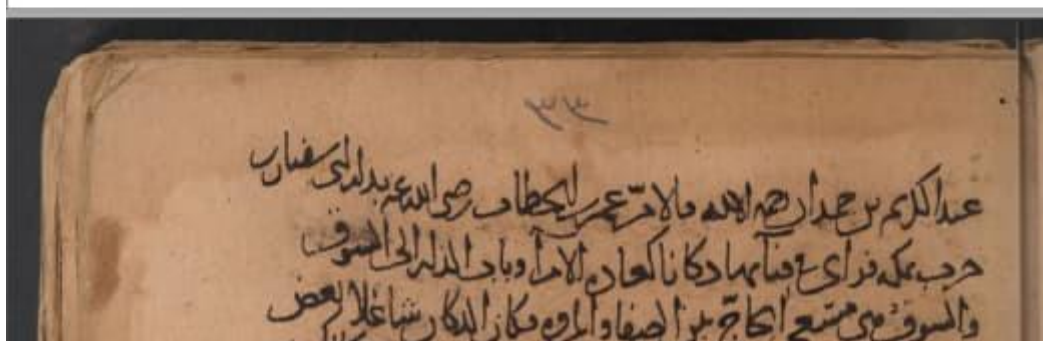 ٣٣
عبد الكريم بن حمدان رحمه الله قال مرّ عمر بن الخطاب رضي الله عنه بدار ابي سفيان بن
حرب بمكه فراى في فنآيها دكانا كعاده الامرآ وباب الدار الى السوق
والسوق متسع الحاجّ بين الصفا والمروه فكان الدكان شاغلا لبعض